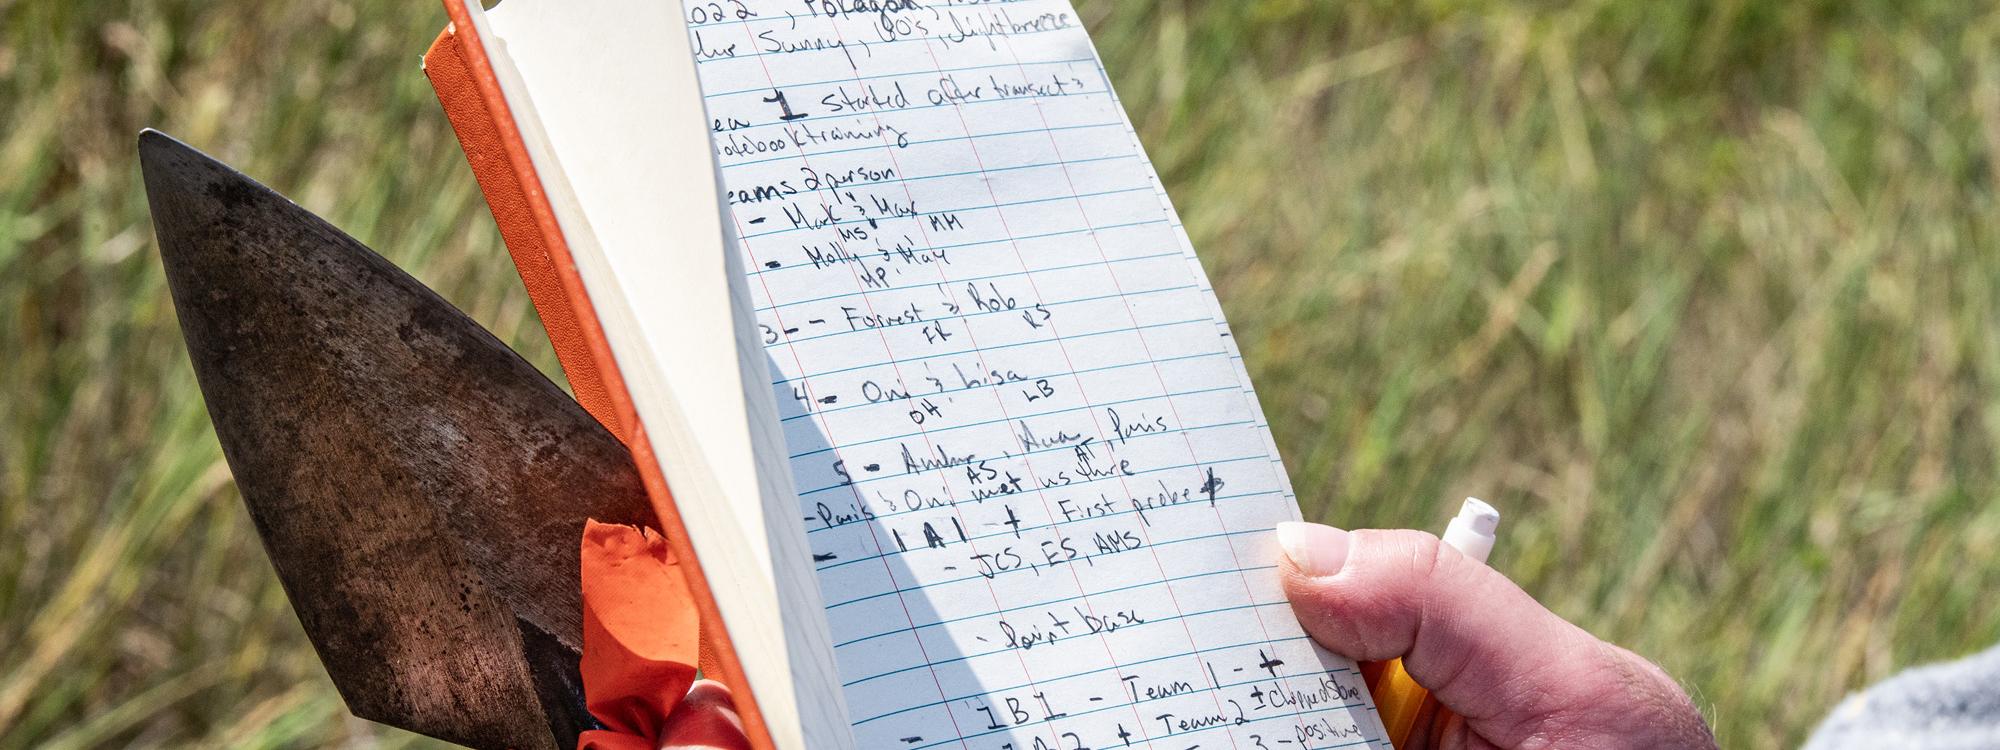 022, Pokagon,
Sunny, 80's, light breeze
ea 1 started after transect &
otebook training
eams 2 person
- Mark & Max
MS MM
- Molly & May
MP
3 - - Forrest & Rob
RS
4 - Ori & Lisa
OH LB
5 - Amber, Ava, Paris
AS AT
- Paris & Ori met us there
- 1A1 + First probe
- JCS, ES, AMS
- point base
- 1B1 - Team 1 - +
+ Team 2 ± Chipped Stone
3 - positive